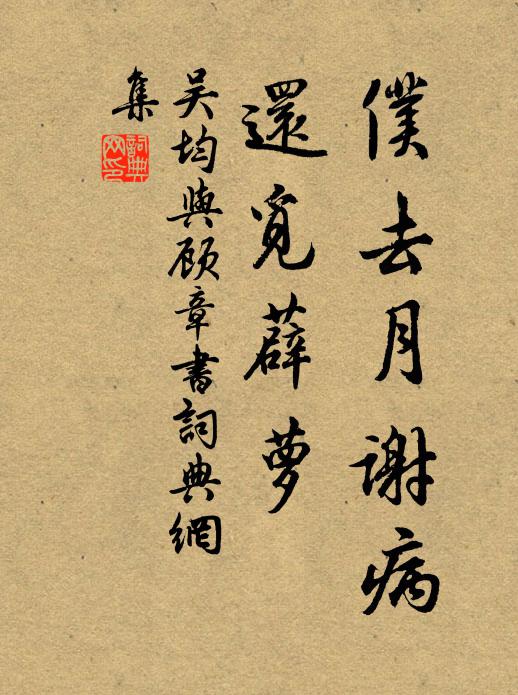 僕去月謝病
還覓薜萝
吴均與顾章書詞典網
集
詞典
网印